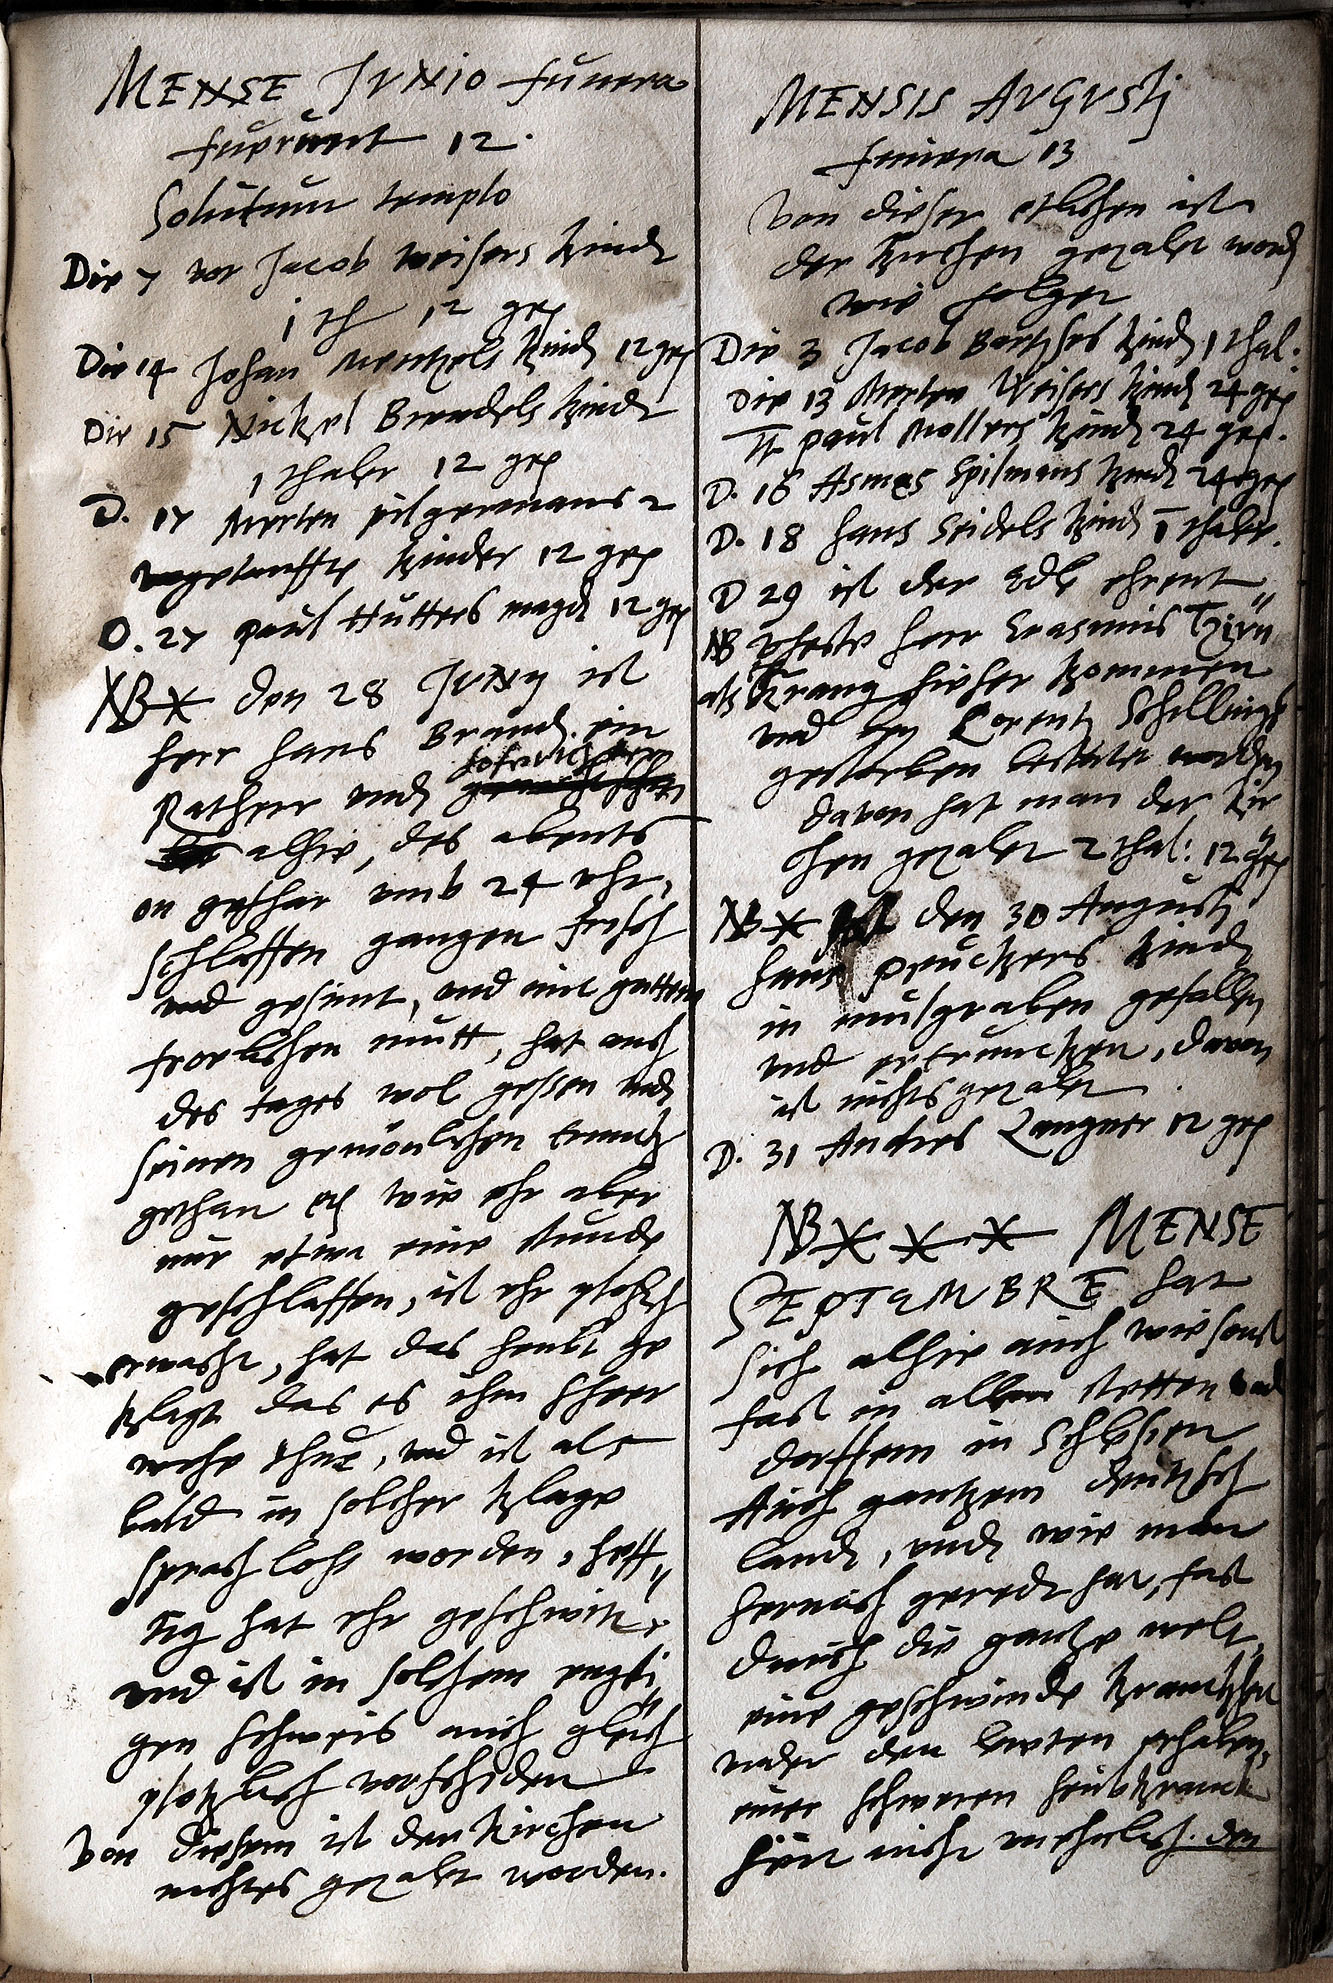 MENSE JVNIO funera
fuerunt 12.
Solutum templo
Die 7 vor Jacob Weisers kind
1 th 12 gr
Die 14 Johan Mentzels kind 12 gr
Die 15 Nickel Brendels kind
1 thaler 12 gr
D. 17 Merten pilgermans 2
ungetauffte kinder 12 gr
D. 27 paul Hutters magd 12 gr
NB den 28 JVNY ist
herr Hans Brand ein
Rathherr und
alhie, des abents
on gefhar umb 24 uhr,
schlaffen gangen frisch
und gesunt, und mit guttem
froelichen mutt, hat auch
des tages wol gessen und
seinen gewönlichen trunck
gethan wie ehr aber
nur etwa eine stunde
geschlaffen, ist ehr plotzlich
erwacht, hat das heubt ge
klagt das es ihm seher
wehe thue, und ist als
bald in solcher klage
sprachlohs worden, heff„
tig hat ehr geschwitz
und ist in solchem engsti„
gen schweis auch gleich
plotzlich vorschiden
Von diesem ist der kirchen
nichtes gezalt worden.
MENSIS AVGVSTJ
funera 13
Von dieser etlichen ist
der kirchen gezalt word
wie folget
Die 3 Jacob Bartsches kind 1 thal.
Die 13 Merten Weisers kind 24 gr
paul Mollers kind 24 gr.
D. 16 Asmas Spilmans kind 24 gr
D. 18 hans Seidels kind 1 thaler.
D 29 ist der Edle ehrent„
NB veste herr Erasmus
als krang hieher kommen
und bey Lorentz Schellings
gestorben bestatet worden
davon hat man der kir„
chen gezalet 2 thal: 12 gr
NB den 30 Augusti
hans peuckers kind
in mulgraben gefallen
und ertruncken, davon
ist nichts gezalet
D. 31 Andres Langner 12 gr
NB MENSE
SEPTEMBRE hat
sich alhie auch wie sonst
fast in allen stetten und
dorffern in Schlesien
Auch gantzem deutsch
land, und wie man
hernach geredt hat, fast
durch die gantze welt,
eine geschwinde kranckheit
unter den leuten erhaben,
einer schweren heubtkranck
heit nicht unehnlich. den